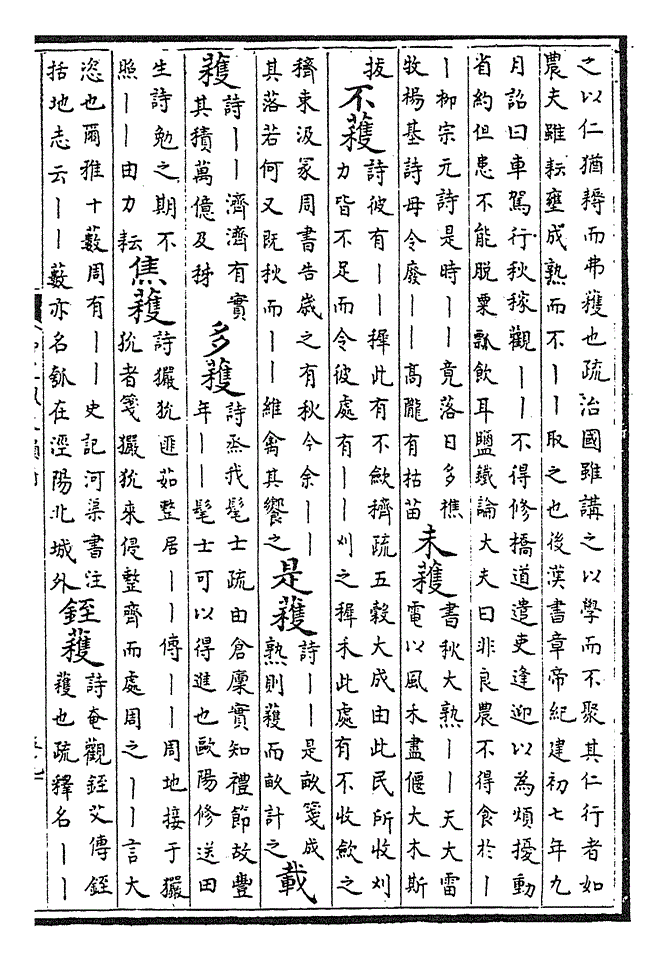 之以仁猶耨而弗穫也疏治國雖講之以學而不聚其仁行者如
農夫雖耘壅成熟而不丨丨取之也後漢書章帝紀建初七年九
月詔曰車駕行秋稼觀丨丨不得修橋道遣吏逢迎以為煩擾動
省約但患不能脫粟瓢飲耳鹽鐵論大夫曰非良農不得食於丨
丨柳宗元詩是時丨丨竟落日多樵
牧楊基詩毋令廢丨丨高隴有枯苗
未穫
書秋大熟丨丨天大雷
電以風禾盡偃大木斯
拔
不穫
詩彼有丨丨穉此有不歛穧疏五穀大成由此民所收刈
力皆不足而令彼處有丨丨刈之穉禾此處有不收歛之
穧束汲冢周書告歲之有秋今余丨丨
其落若何又既秋而丨丨維禽其饗之
是穫
詩丨丨是畝箋成
熟則穫而畝計之
載
穫
詩丨丨濟濟有實
其積萬億及秭
多穫
詩烝我髦士疏由倉廩實知禮節故豐
年丨丨髦士可以得進也歐陽修送田
生詩勉之期不
照丨丨由力耘
焦穫
詩玁狁匪茹整居丨丨傳丨丨周地接于玁
狁者箋玁狁來侵整齊而處周之丨丨言大
恣也爾雅十藪周有丨丨史記河渠書注
括地志云丨丨藪亦名瓠在涇陽北城外
銍穫
詩奄觀銍艾傳銍
穫也疏釋名丨丨